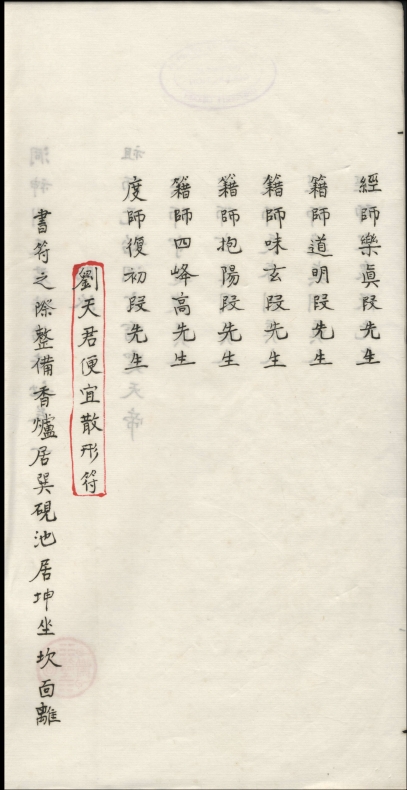 經師樂真段先生
籍師道明段先生
籍師味玄段先生
籍師抱陽段先生
籍師四峰高先生
度師復初段先生
劉天君便宜散形符
書符之際整備香爐居巽硯池居坤坐坎面離